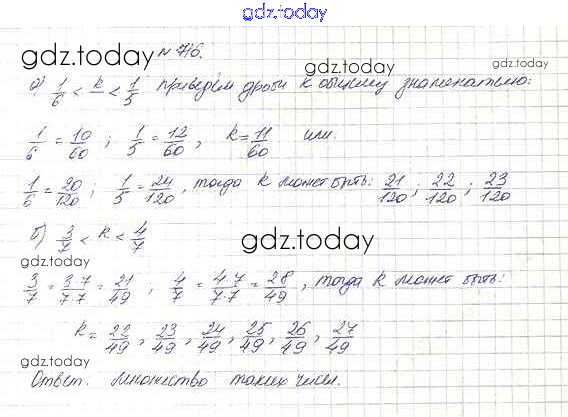 gdz.today
gdz.today № 716. gdz.today
а) 1/6 < k < 1/5 приведём дроби к общему знаменателю:
1/6 = 10/60 ; 1/5 = 12/60 , k = 11/60 или
1/6 = 20/120 ; 1/5 = 24/120 , тогда k может быть: 21/120 ; 22/120 ; 23/120
б) 3/7 < k < 4/7
gdz.today gdz.today
3/7 = 3·7/7·7 = 21/49 ; 4/7 = 4·7/7·7 = 28/49 , тогда k может быть:
k = 22/49 , 23/49 , 24/49 , 25/49 , 26/49 , 27/49
gdz.today
Ответ. множество таких чисел.
gdz.today gdz.today